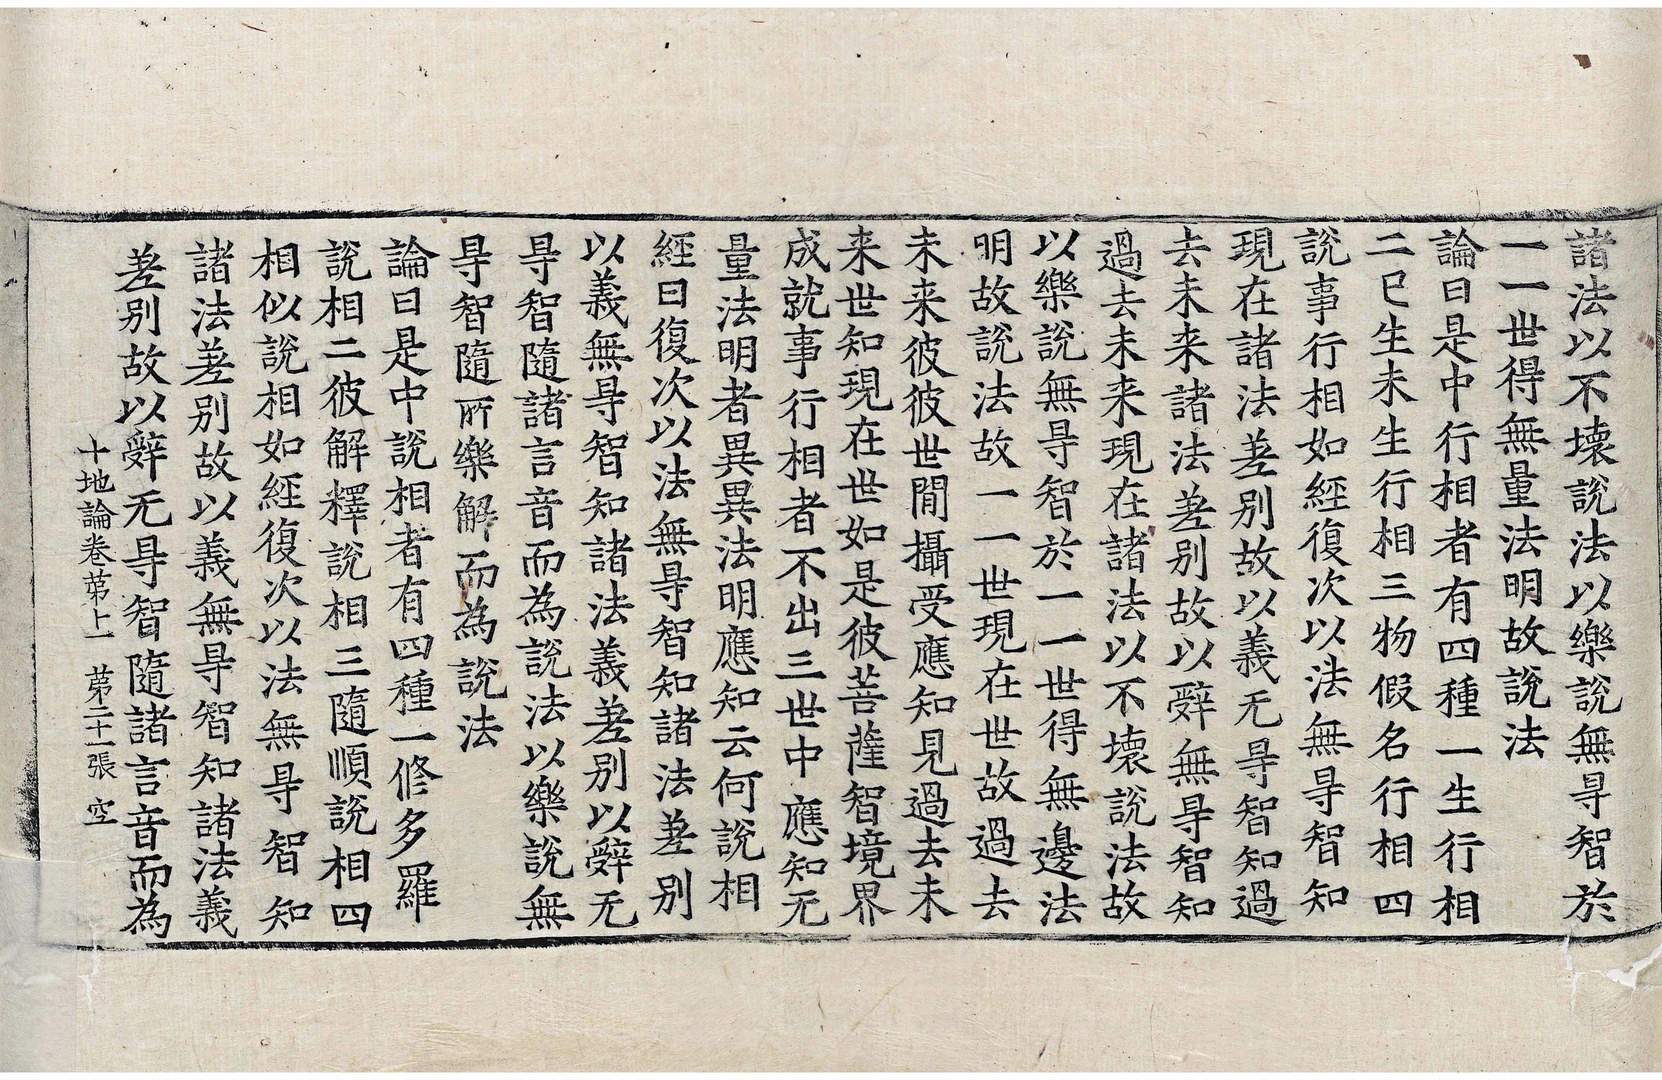 諸法以不壞說法以樂說無㝵智於
一一世得無量法明故說法
論曰是中行相者有四種一生行相
二已生未生行相三物假名行相四
說事行相如經復次以法無㝵智知
現在諸法差别故以義无㝵智知過
去未来諸法差别故以辤無㝵智知
過去未来現在諸法以不壞說法故
以樂說無㝵智於一一世得無邊法
明故說法故一一世現在世故過去
未来彼彼世間攝受應知見過去未
来世知現在世如是彼菩薩智境界
成就事行相者不出三世中應知无
量法明者異異法明應知云何說相
經曰復次以法無㝵智知諸法差别
以義無㝵智知諸法義差别以辤无
㝵智隨諸言音而為說法以樂說無
㝵智隨所樂解而為說法
論曰是中說相者有四種一修多羅
說相二彼解釋說相三隨順說相四
相似說相如經復次以法無㝵智知
諸法差别故以義無㝵智知諸法義
差别故以辤无㝵智隨諸言音而為
十地論卷苐上一　苐二十一張　空